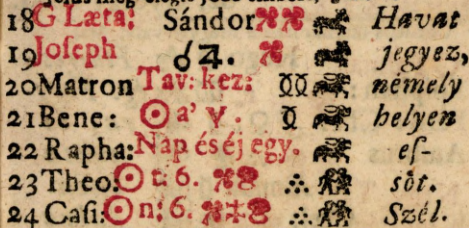 18 G Læta: Sándor Havat
19 Joſeph ☌♃. jegyez,
20 Matron Tav: kez: némely
21 Bene: ☉ a' ♈. helyen
22 Rapha: Nap éséj egy. eſ-
23 Theo: ☉ t: 6. ſöt.
24 Caſi: ☉ n: 6. Szél.